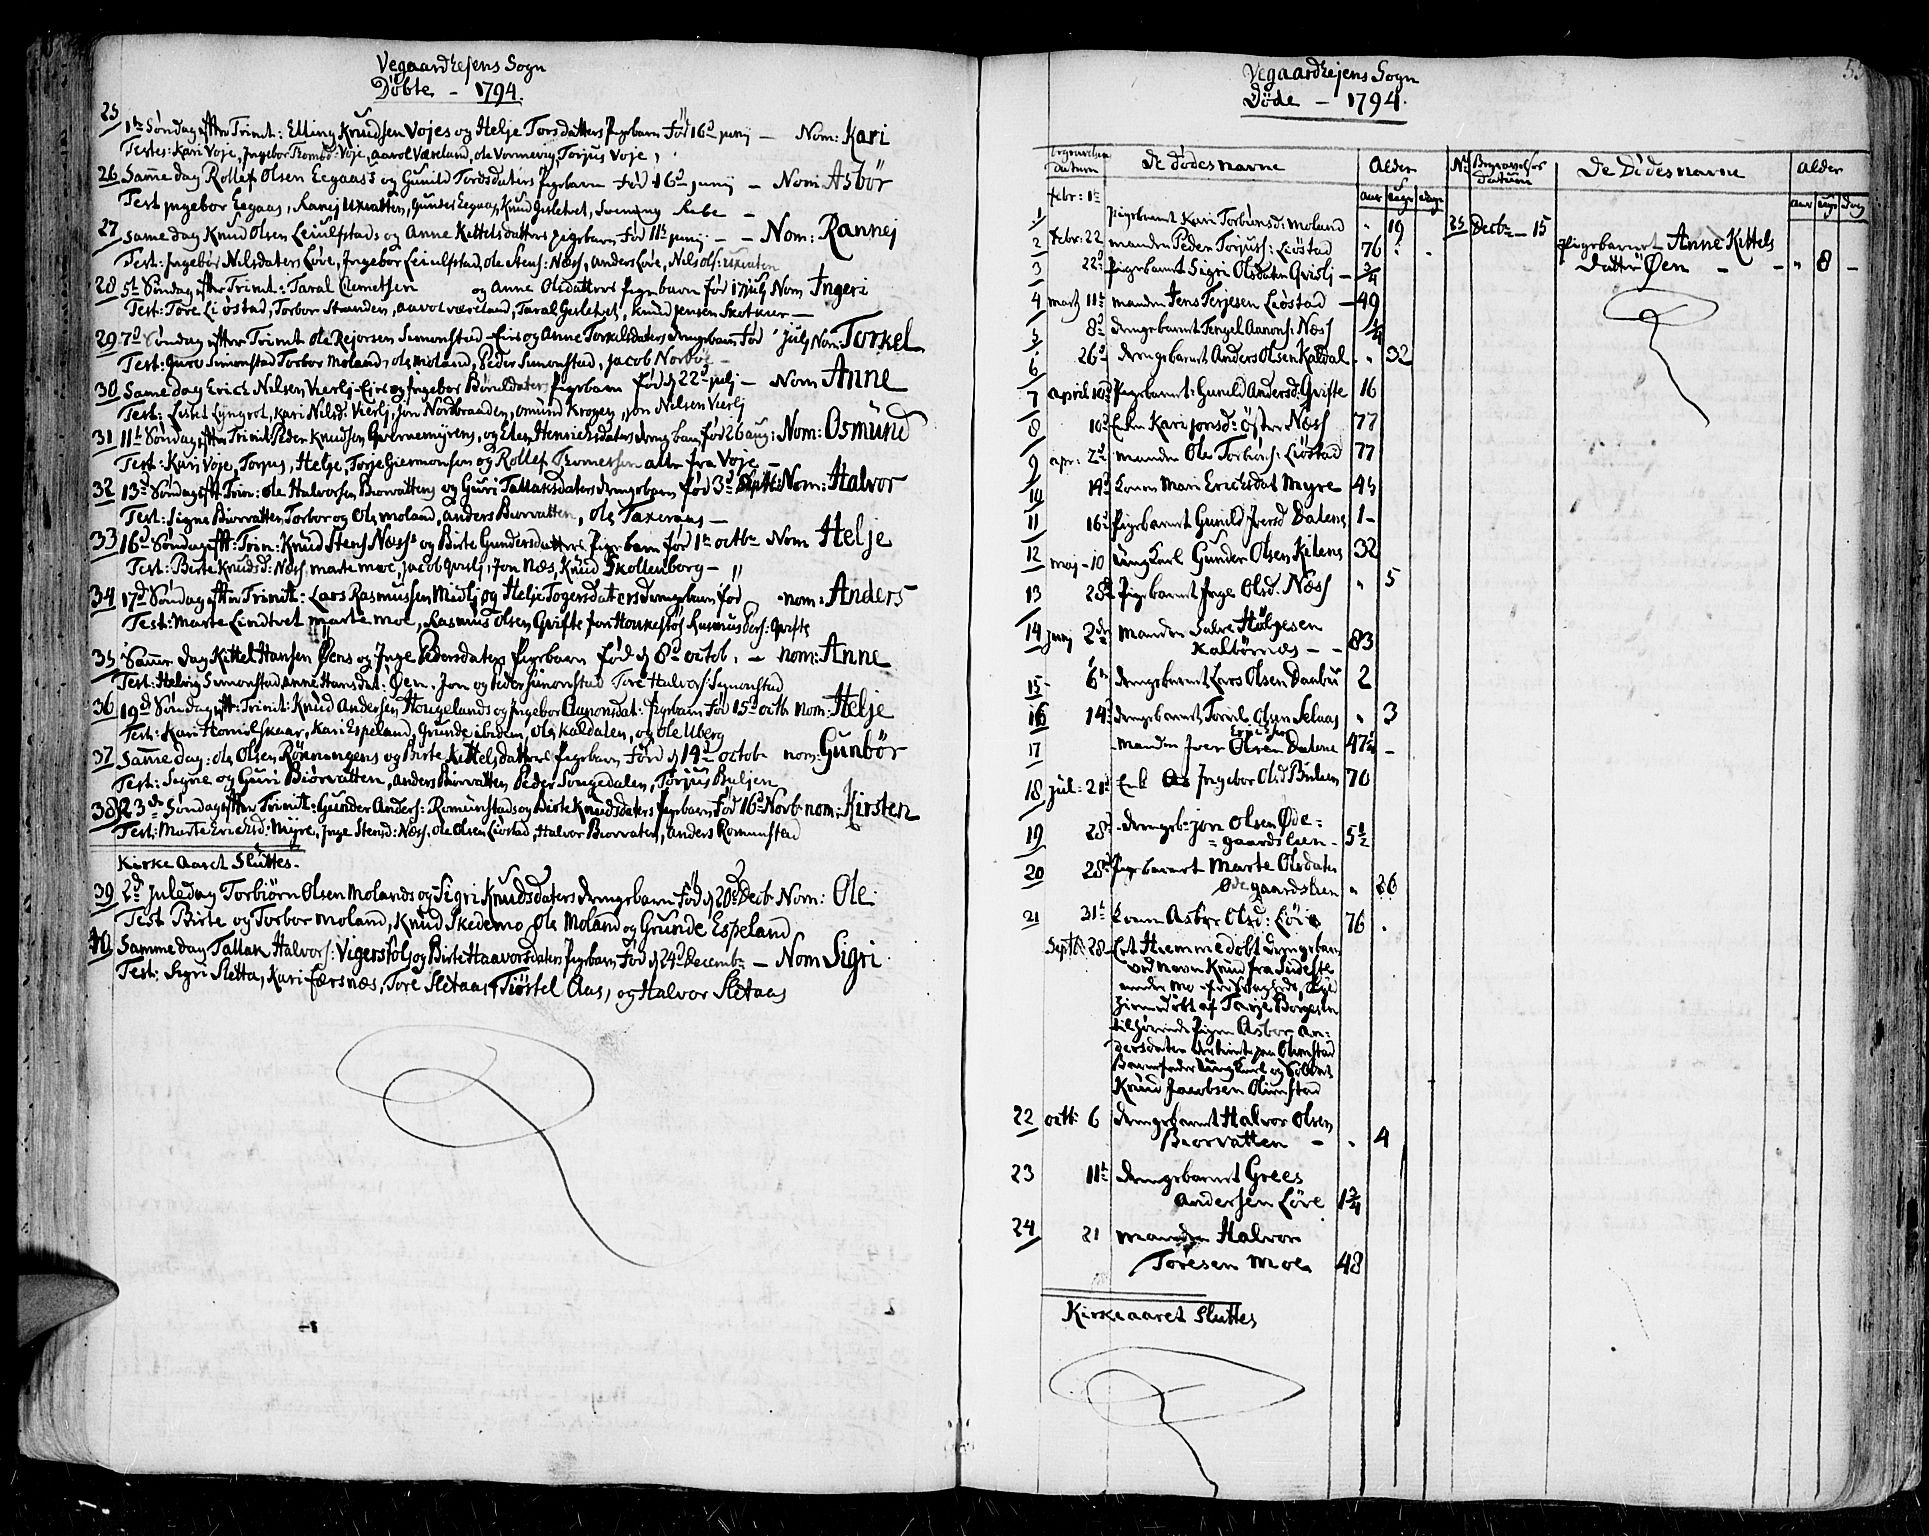 Vegaardhejens Sogn
Døbte - 1794.
25
1te Søndag efter Trinit: Elling Knudsen Vojes og Helje Torsdatters Pigebarn Fød 16d junij - Nom: Kari
Testes: Kari Voje, Ingebor Voje, Aavol Væreland, Ole Vormevig, Torjus Voje,
26 Same dag Rollef Olsen Eegaas's og Gunild Tordsdatters Pigebarn Fød 16d junij - Nom: Asbør
Test Ingebor Eegaas, Ranej Uxvatten, Gunder Eegaas, Knud Gisletvet, Svening Rebe -
27 same dag Knud Olsen Leiulfstads og Anne Kittelsdatters pigebarn Fød 11te junij - - Nom: Rannej
Test: Ingebor Nilsdatter Løve, Ingebor Leiulfstad, Ole Stens: Næss, Anders Løve, Nils Ols: Uxvatten
28 5te Søndag efter Trinit: Taral Clemetsen og Anne Olsdatters Pigebarn fød 17 julj Nom Ingeri
Test: Tore Liøstad, Torbor Stranden, Aavol væreland, Taral Gisletvet, Knud Jensen
29 7d Søndag efter Trinit Ole Rejersen Simonstad - Eie og Anne Torkelsdatters drengebarn Fød julj Nom: Torkel
Test: Guro Simonstad Torbor Moland, Ole Moland, Peder Simonstad, Jacob
30 Same dag Erich Nilsen Vierlj-Eie og Ingebor Børuldaters Pigebarn Fød d 22d julj - Nom Anne
Test: Lisbet Lyngrot, Kari Nilsd: Vierlj, Jon Nordbraaden, Omund Krogen, Jon Nilsen Vierlj
31 11te Søndag efter Trinit: Peder Knudsen og Elen Henricsdaters dreng barn fød 26 aug: Nom: Osmund
Test: Kari Voje, Torjus, Helje, Torje Giermonsen og Rollef alle fra Voje -
32 13d Søndag eft Trin: Ole Halvorsen Biorvattens og Guri Tallaksdaters drengebarn fød 3d Septb: Nom: Halvor
Test: Signe Biorvatten, Torbor og Ole moland, Anders Biorvatten, Ole -
33 16d Søndag eft: Trin: Knud Stens Næss's og Birte Gundersdatters Pigebarn fød 1te octbr Nom Helje
Test: Birte Knudsd: Næss, marte moe, jacob Qvislj, Jon Næs, Knud Skollenborg -
34 17d Søndag efter Trinit: Lars Rasmussen Midlj og Helje Togersdaters drengebarn fød - nom: Anders
Test: Marte Lindtvet marte moe, Rasmus Olsen Qvifte Jon Rasmus Pers: Qvifte
35 Same dag Kittel Hansen Øens og Inge Pedersdaters Pigebarn Fød d 8d octob. - nom: Anne
Test: Helvig Simonstad, Anne Hansdat: Øen, Jon og Peder Simonstad Tore Halvors: Simonstad
36 19d Søndag eft: Trinit: Knud Andersen Hougelands og Ingebor Aanonsdat: Pigebarn Fød 15d octb nom: Helje
Test: Kari Kari Espeland, Grunde ibidem, Ole Kaldalen, og Ole Uberg
37 Same dag: Ole Olsen Rønningens og Birte Kittelsdatters Pigebarn Fød d 14d octob nom: Gunbør
Test: Signe og Guri Biorvatten, Anders Biorvatten Peder Songedalen, Torjus Buljen
38 23de Søndag efter Trinit: Gunder Anders: Romunstads og Birte Knudsdaters Pigebarn Fød 16d Novb: nom: Kirsten
Test: Marte Erichsd: Myre, Inge Stensd: Næss, Ole Olsen Liøstad, Halvor Biorvaten, Anders Romunstad
Kirke Aaret Sluttes.
39 2d Juledag Torbiørn Olsen Molands og Sigri Knudsdaters drengebarn Fød d 20d Decb Nom: Ole
Test Birte og Torbor Moland, Knud Skedemo Ole Moland og Grunde Espeland
40 Sammedag Tallak Halvors: Vigerstøl og Birte Haavorsdaters Pigebarn Fød d 24d Decembr - Nom Sigri
Test: Sigri Sletta, Kari Færsnæs, Tore Sletaas, Tiøstel Aas, og Halvor Sletaas
Vegaardhejens Sogn
Døde - 1794.
Begravelses Datum De Dødes navne Alder
aar uge dage
1 febr: 1te Pigebarnet Kari Torbiørnsd: Moland " 19
2 Febr: 22 manden Peder Torjus: Liøstad 76
3 22d Pigebarnet Sigri Olsdater Qvislj - 3/4
4 martz 11te manden Jens Terjesen Liøstad - 49
5 8d drengebarnet Tengel Aanons: Næss 1/4
6 26d drengebarnet Anders Olsen Kaldal " 32
7 april 10d Pigebarnet: Gunild Andersd: Qvifte 16
8 10d Enken Kari jonsd: øster Næss 77
9 apr: 2d manden Ole Torbiørs: Liøstad 77
10 19d konen Mari Erichsdat Myre 45
11 16d Pigebarnet Gunild Iversd Datens 1 -
12 maj - 10 ung karl Gunder Olsen Kilens 32
13 28d Pigebarnet Inge Olsd. Næss " 5
14 junj 2den Manden Salve Hølgesen
Kalbørnæs - - 83
15 6te drengebarnet Lars Olsen Daabu 2
16 14d drengebarnet Torvil Olsen Selaas " 3
17 manden Iver Olsen Datene 47 1/2 -
18 jul: 21d Enk Ingebor Olsd Bulien 70
19 28d drengeb: jon Olsen Øde=
gaardslien - 5 1/2
20 28d Pigebarnet Marte Olsdater
Ødegaardslien " 26
21 31te konen Asbør Olsd: Løve 76
Septb: 28 Et Hiemmedøbt drengebarn
ved navn Knud fra Sideste
hiemdøbt af Terje Børgesen
tilhørende Pigen Asbor An=
dersdater
Barnefader Ungkarl og Soldat
Knud Jacobsen Olimstad
22 octb: 6 drengebarnet Halvor Olsen
Biorvatten - " 4
23 11te drengebarnet Grees
Andersen Løve 1 3/4
24 21 manden Halvor
Toresen Moe 48
Kirkeaaret Sluttes
No Begravelses Datum De Dødes navne Alder
aar uge dag
25 Decbr - 15 Pigebarnet Anne Kittels
datter Øen - - " 8 -